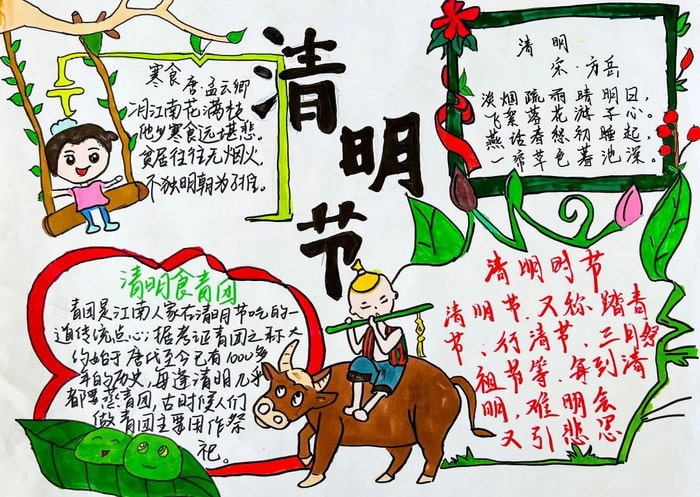 清明节
寒食
唐孟云卿
二月江南花满枝
他乡寒食远堪悲。
贫居往往无烟火
不独明朝为子推。
清明
宋·方岳
淡烟疏雨晴明日,
飞絮落花游子心。
燕话者怨初睡起
一帘草色暮池深。
清明食青团
青团是江南人家在清明节吃的一
道传统点心;据考证青团之称大
约始于唐代至今已有1000多
年的历史,每逢清明几乎
都要蒸青团,古时候人们
做青团主要用作祭
祀。
清明时节
清明节.又称踏青
节、行清节、三月
祭祖节等.每到清
明.难明会
又引悲思